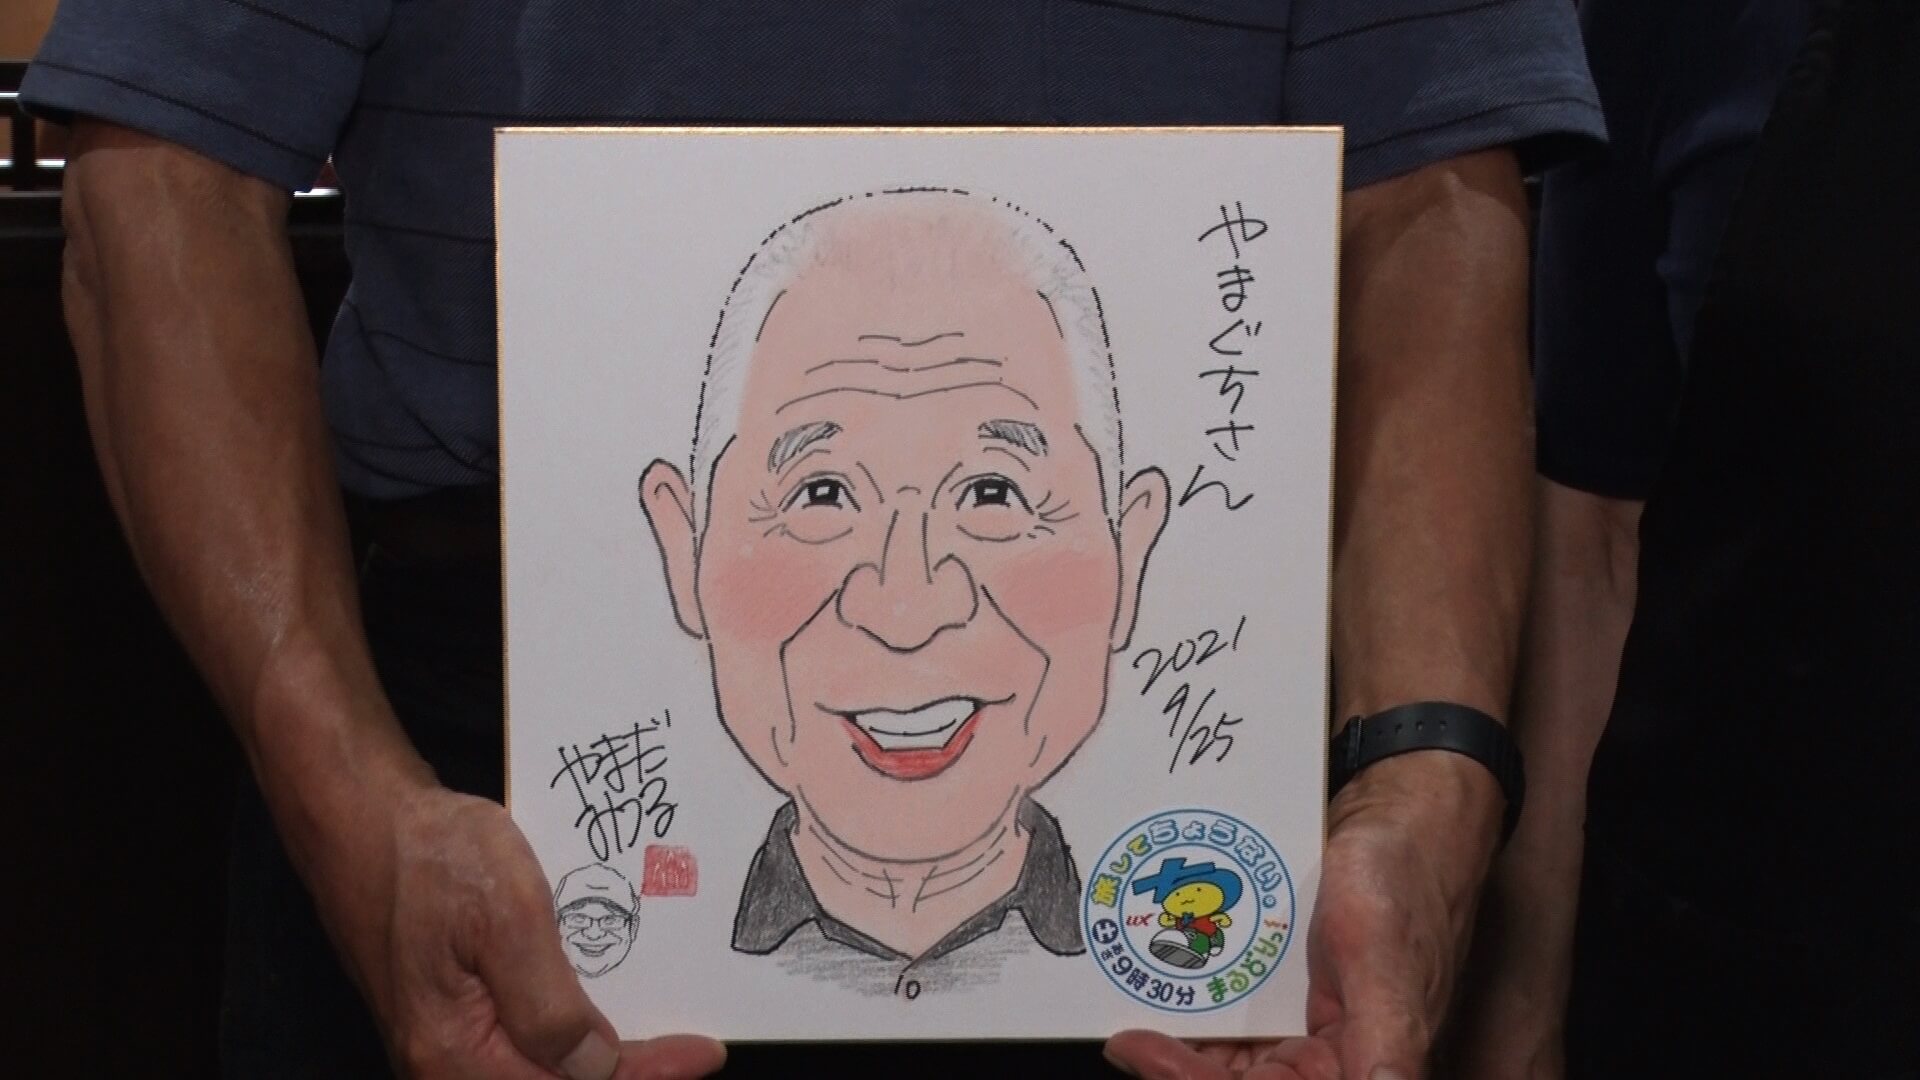 やまぐちさん
2021
9/25
やまだ
みつる
旅してちょうない。
UX
土 あさ 9時30分
まるどりっ!